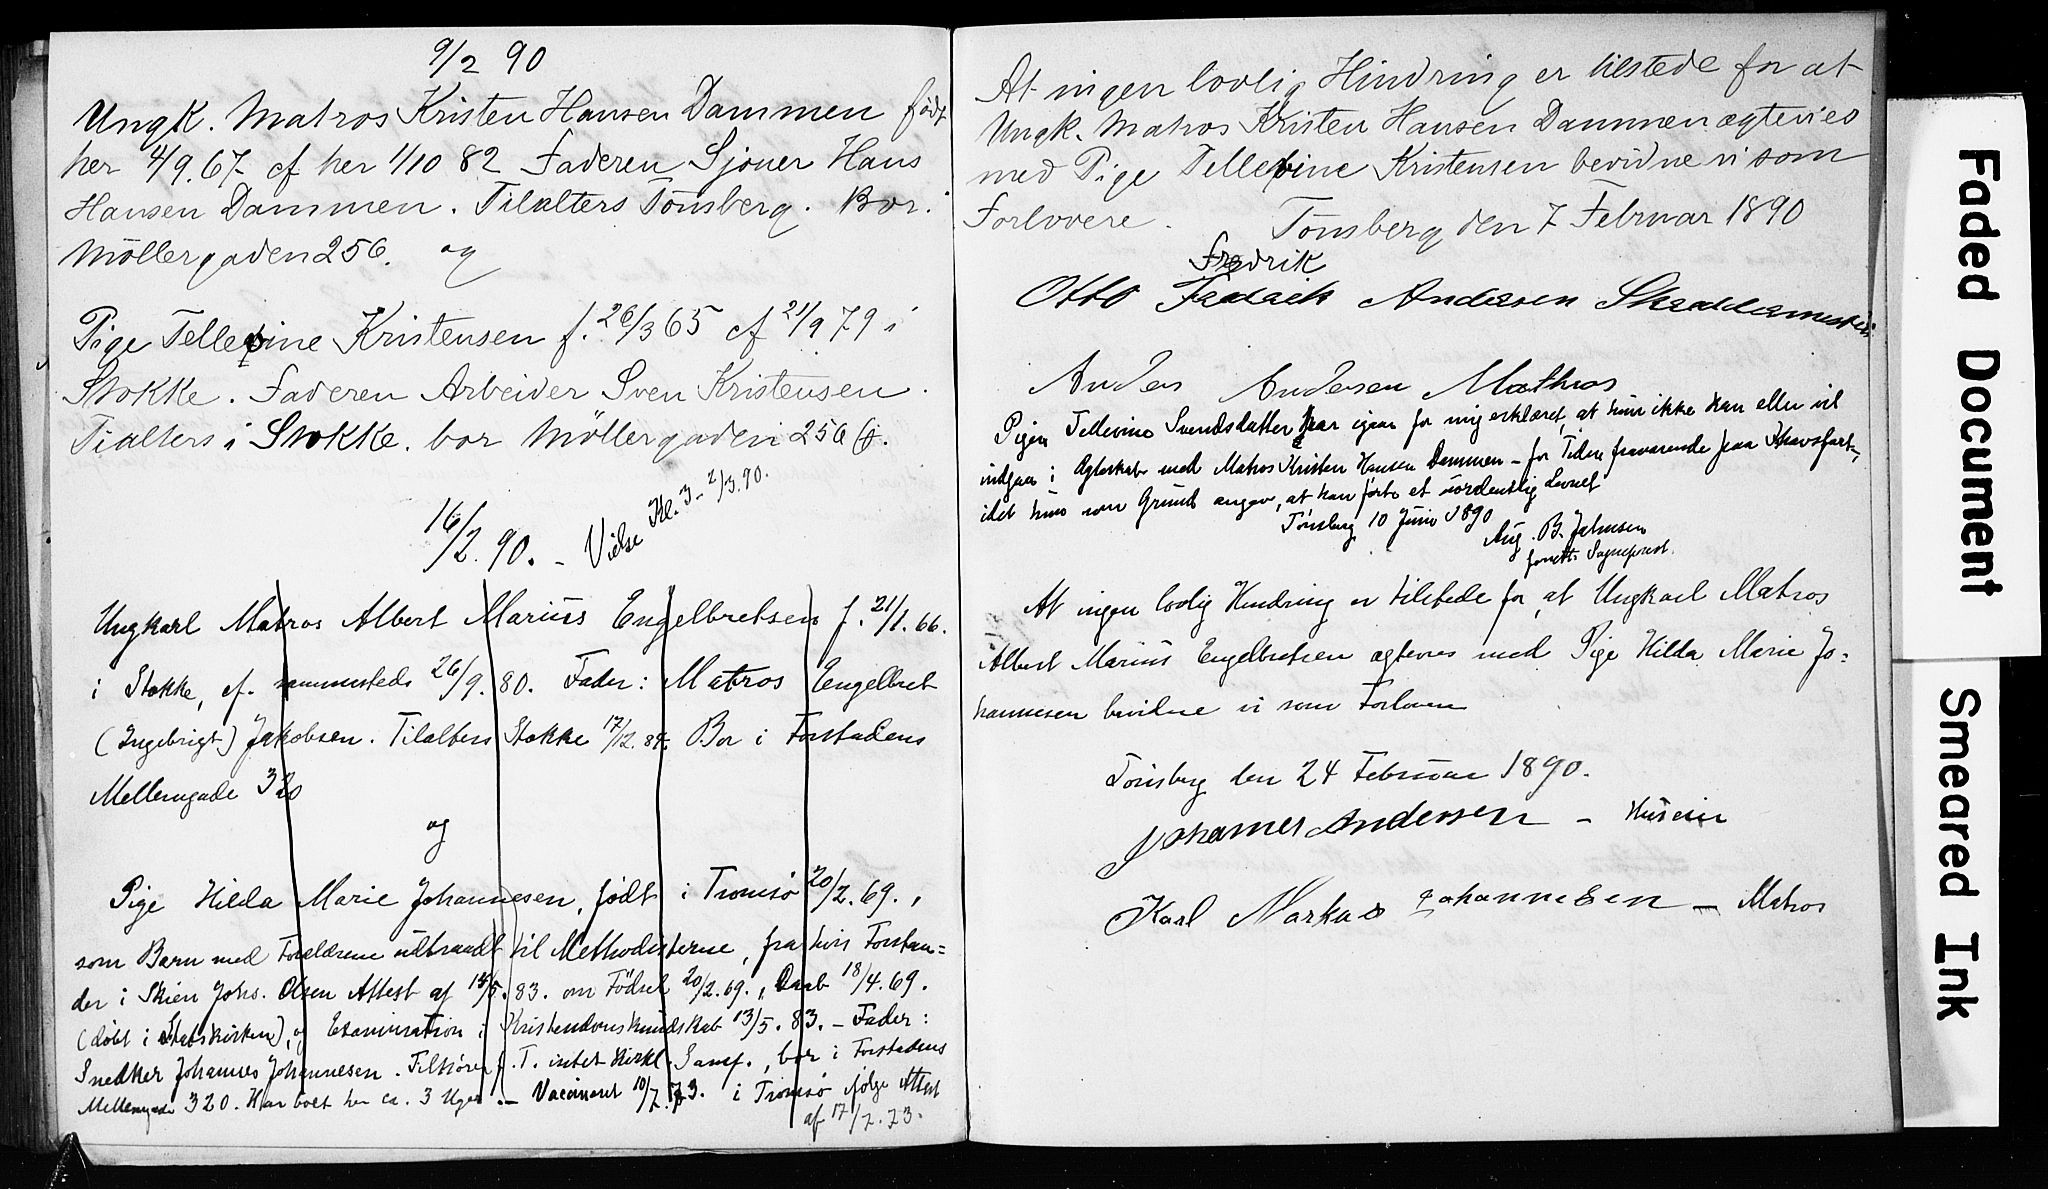 9/2 90
Ungk. Matros Kristen Hansen Dammen født
her 4/9.67. cf her 1/10 82 Faderen Sjömer Hans
Hansen Dammen. Tilalters Tönsberg. Bor i
Möllergaden 256. og
Pige Tellevine Kristensen f. 26/3 65 cf 21/9 79 i
Stokke. Faderen Arbeider Sven Kristensen.
Tialters i Stokke. bor Möllergaden 256
16/2. 90. - Vielse Kl. 3 - 2/3. 90.
Ungkarl Matros Albert Marius Engelbretsen f. 21/1. 66.
i Stokke, cf. sammesteds 26/9. 80. Fader: Matros Engelbret
(Ingebrigt) Jakobsen. Tilalters Stokke 17/12. 89. Bor i Forstadens
Mellemgade 320
og
Pige Hilda Marie Johannesen, født i Tromsö 20/2. 69.,
som Barn med Forældrene udtraadt til Methodisterne, fra hvis Forstan=
der i Skien Johs. Olsen Attest af 15/5. 83. om Födsel 20/2. 69., Daab 18/4. 69.
(döbt i Statskirken), og Examination i Kristendomskundskab 13/5. 83. - Fader:
Snedker Johannes Johannesen. Tilhører f. T. intet Kirkl. Samf., bor i Forstadens
Mellemgade 320. Har boet her ca. 3 Uger. - Vaccineret 10/7. 73. i Tromsö ifølge Attest
af 17/7. 73.
At ingen lovlig Hindring er tilstede for at
Ungk. Matros Kristen Hansen Dammen ægtevies
med Pige Tellevine Kristensen bevidne vi som
Forlovere. Tönsberg den 7 Februar 1890
Fredrik
Otto Fredrick Andersen Skreddermester
Anders Andersen Mathros
Pigen Tellevine Svendsdatter har igaar for mig erklæret, at hun ikke kan eller vil
indgaa i Ægteskab med Matros Kristen Hansen Dammen - for Tiden fraværende paa
idet hun som Grund angav, at han førte et uordentlig Levnet
Tönsberg 10 Juni 1890
Aug. B. Johnsen
Sogneprest.
At ingen lovlig Hindring er tilstede for, at Ungkarl Matros
Albert Marius Engelbretsen ægtevies med Pige Hilda Marie Jo=
hannesen bevidne vi som Forlovere
Tönsberg den 24 Februar 1890.
Johannes Anderssen - Huseier
Karl Markus Johannesen - Matros
Faded Document
Smeared Ink